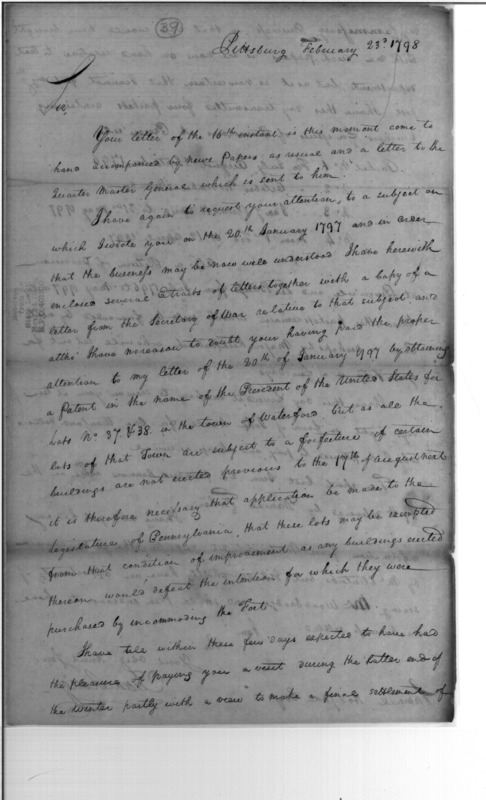 39
Pittsburg February 23d 1798
Sir,
Your letter of the 16th instant is this moment come to
hand accompanied by News Papers as usual and a letter to the
Quarter Master General which is sent to him.
I have again to request your attention, to a subject on
which I wrote you on the 20th January 1797 and in order
that the business may be now well understood I have herewith
enclosed several extracts of letters together with a Copy of a
letter from the Secretary of War relative to that subject and
altho' I have no reason to doubt your having paid the proper
attention to my letter of the 20th of January 1797 by obtaining
a Patent in the name of the President of the United States for
Lots No 37 & 38. in the town of Waterford but as all the
lots of that Town are subject to a forfeiture if certain
buildings are not erected previous to the 17th of August next
it is therefore necessary that application be made to the
legislature of Pennsylvania, that these lots may be exempted
from that condition of improvement as any buildings erected
thereon would defeat the intention for which they were
purchased by incommoding the Fort.
I have till within these few days expected to have had
the pleasure of paying you a visit during the latter end of
the Winter partly with a view to make a final settlement of